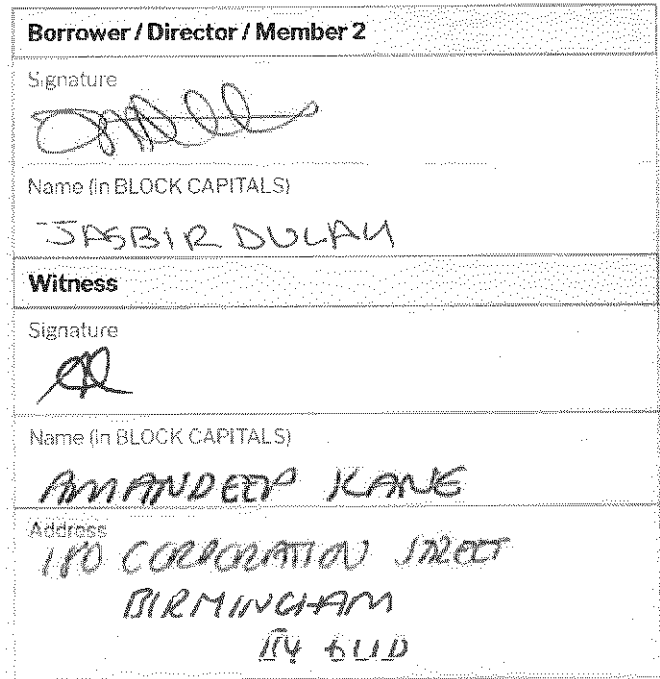 Borrower / Director / Member 2
Signature
Name (in BLOCK CAPITALS)
JASBIR DULAY
Witness
Signature
Name (in BLOCK CAPITALS)
AMANDEEP KANG
Address
180 CORPORATION STREET
BIRMINGHAM